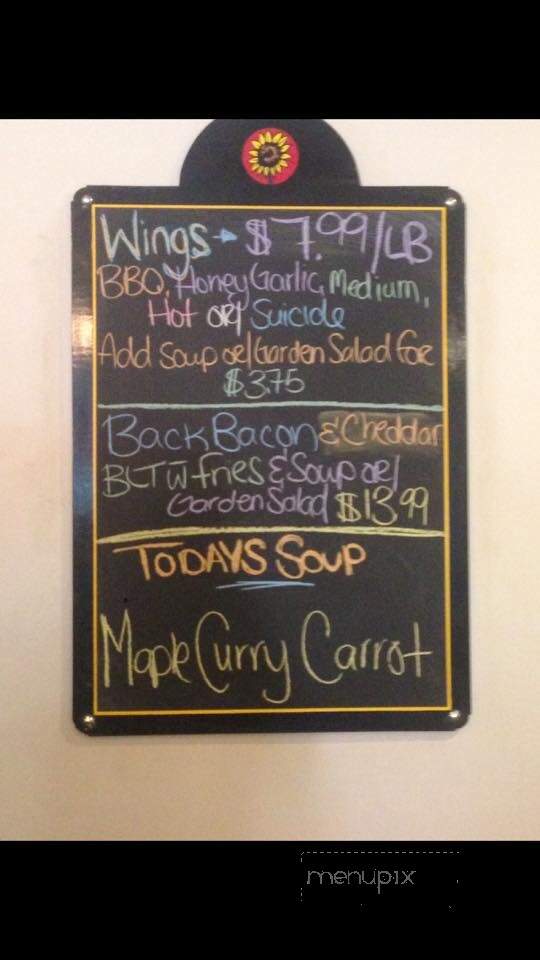 Wings → $7.99/LB
BBQ, Honey Garlic, Medium,
Hot or/ Suicide
Add Soup or/Garden Salad for
$3.75
Back Bacon & Cheddar
BLT w̄ fries & Soup or/
Garden Salad $13.99
TODAYS SOUP
Maple Curry Carrot
menupix